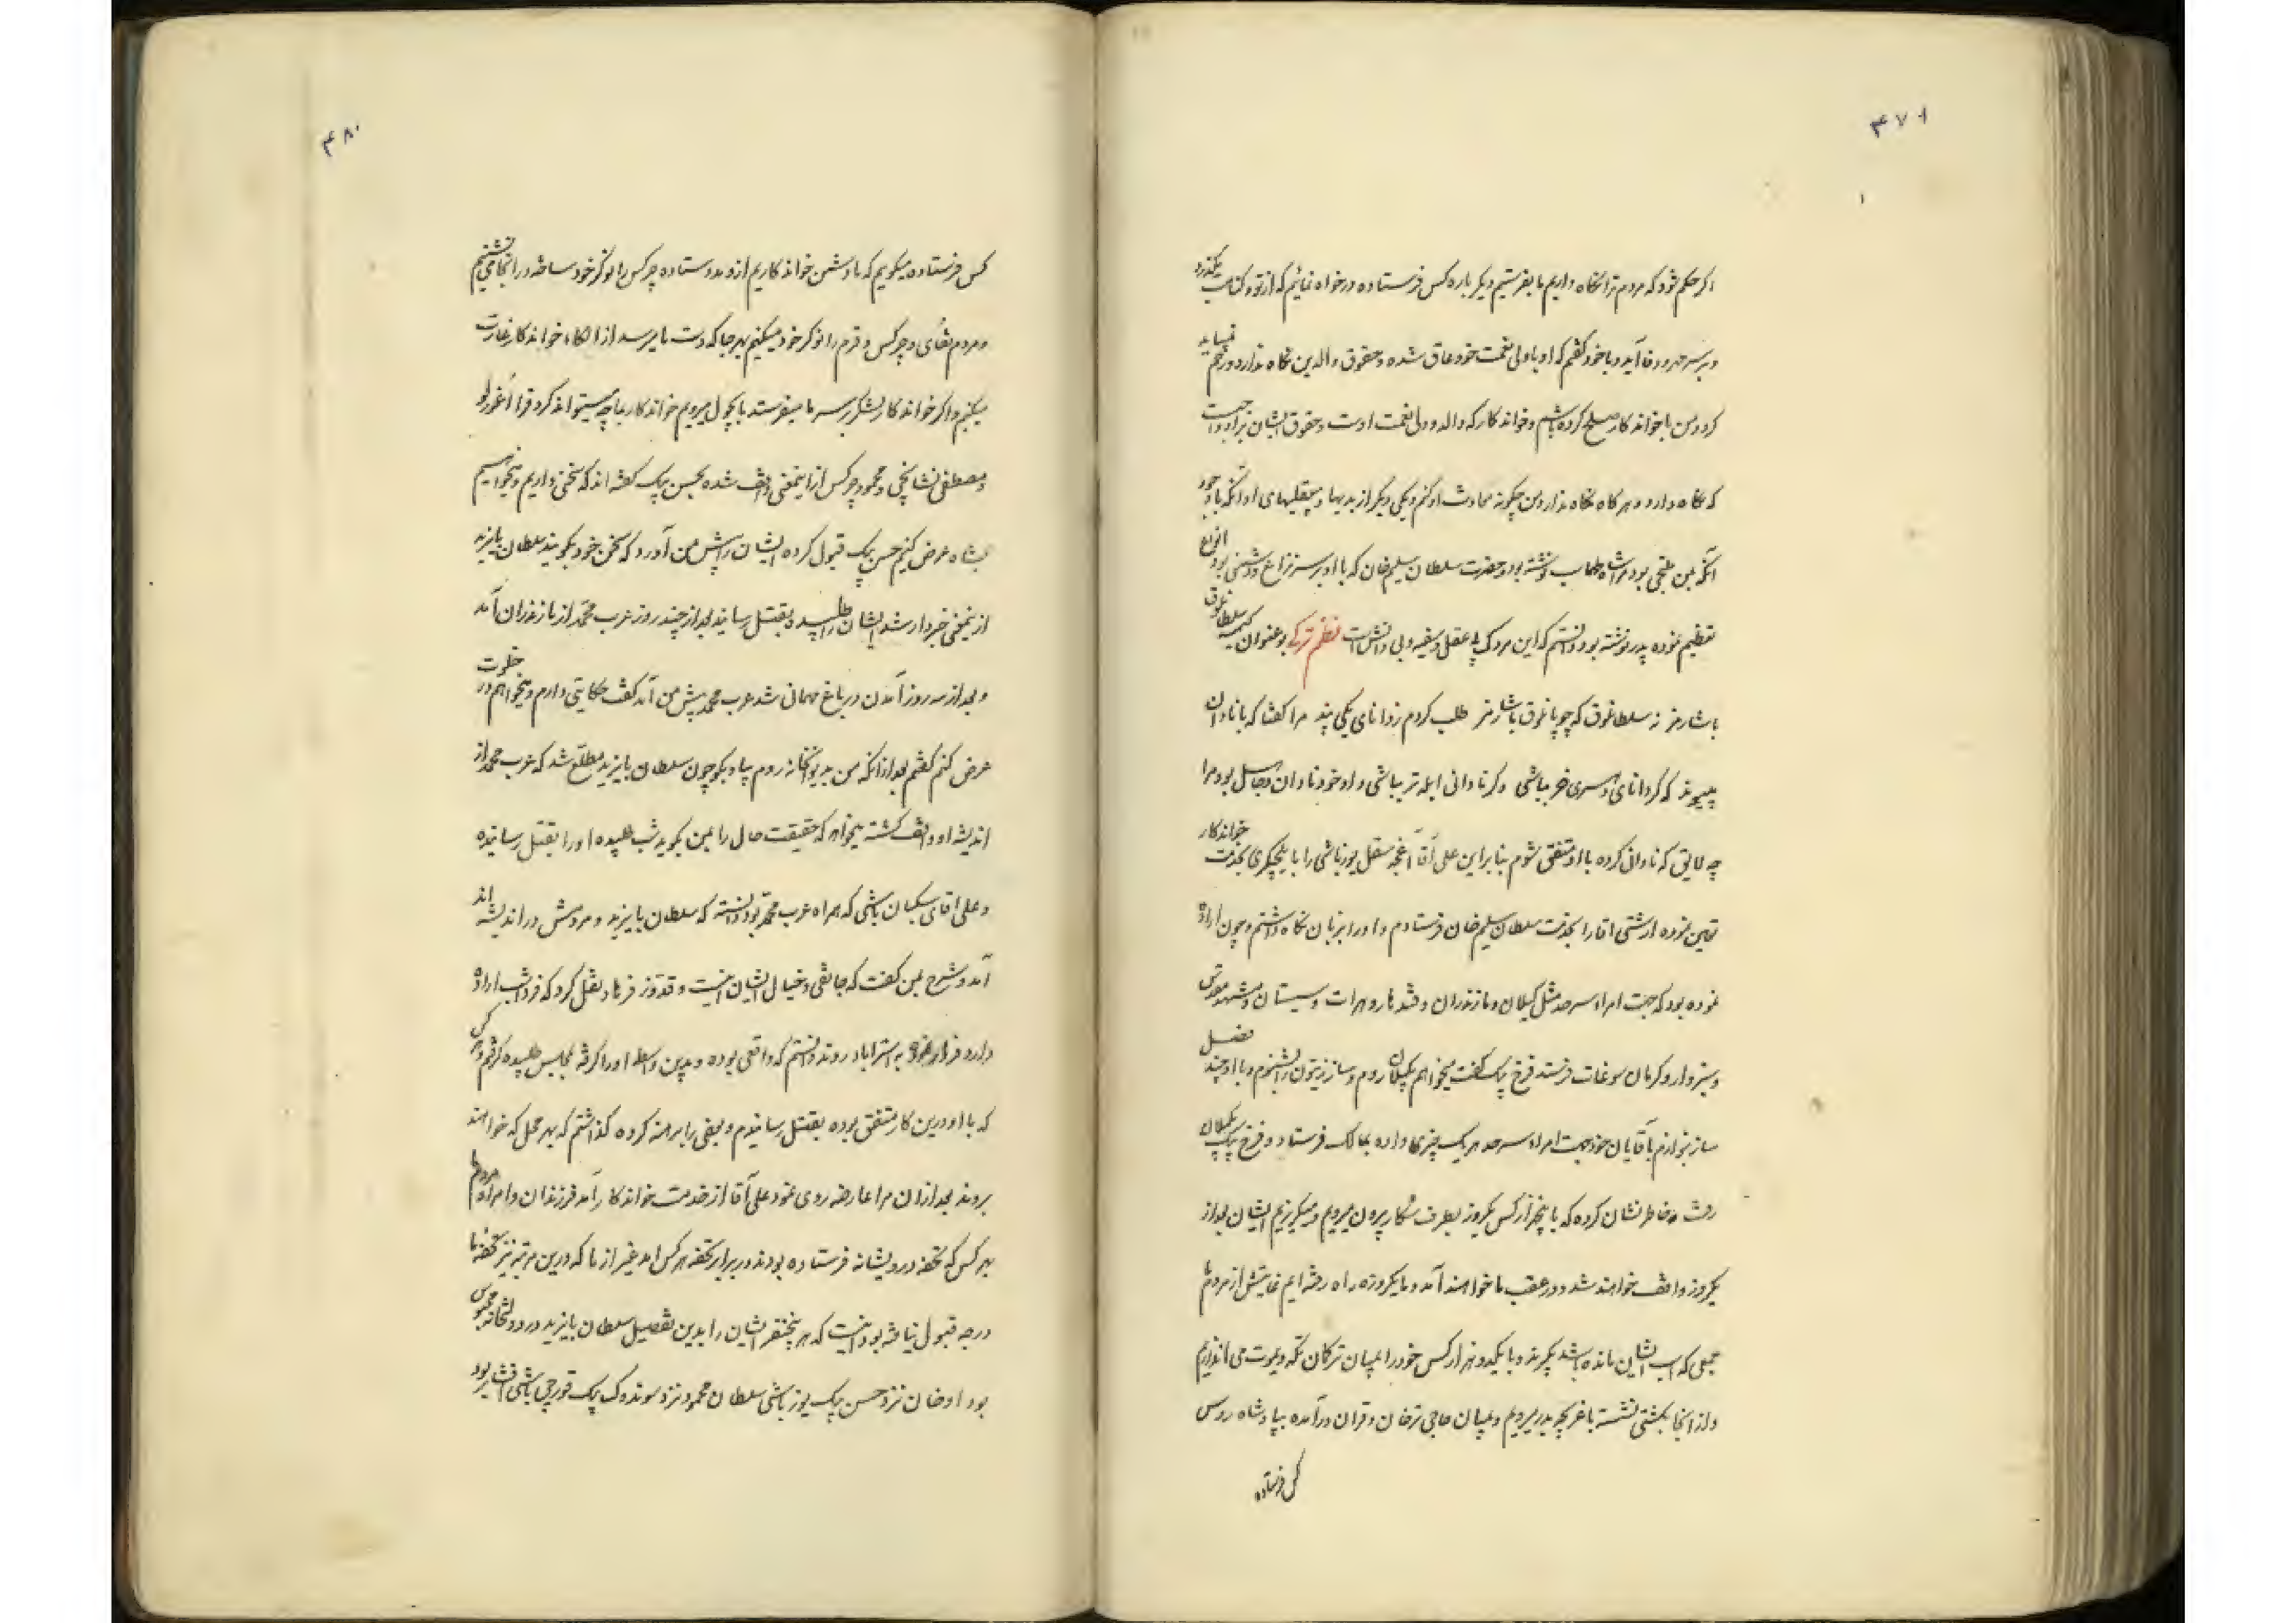 ۴۷۹
اگر حکم شود که مردم ترا نگاه داریم یا بفرستیم دیگر باره کس فرستاده درخواه نمائیم که از تو و کناهت بگذرد
و بر سر مهر و وفا آید و با خود گفتم که او با ولی نعمت خود عاق شده و حقوق والدین نگاه ندارد و رحم نباید
کرد و من با خواندکار صلح کرده باشم و خواندکار که والد و ولی نعمت اوست و حقوق ایشان بر او واجبست
که نگاه دارد هرگاه نگاه ندارد من چگونه معاونت او کنم و یکی دیگر از بدیها و بیعقلیهای او آنکه با وجود
آنکه بمن ملتجی بود مرا شاه طهماسب نوشته بود و حضرت سلطان سلیم خان که با او بر سر نزاع و دشمنی بود انواع
تعظیم نموده پدر نوشته بود دانستم که این مردک بی عقل و سفیه و بی دانش است نظم ترکی بو عنوان کیمسه سلطانلوق
باشارمز نه سلطانلوق که چوپانلوق باشارمز طلب کردم ز دانای یکی پند مرا گفتا که با نادان
مپیوند که گر دانای دهری خر بباشی وگر نادانی ابله تر بباشی و او خود نادان و جاهل بود مرا
چه لایق که نادانی کرده با او متفق شوم بنابراین علی آقا آغچه سقل یوزباشی را بایلچیگری بخدمت خواندکار
تعیین نموده ارشتی آقا را بخدمت سلطان سلیم خان فرستادم و او را بزبان نگاه داشتم و چون اراده
نموده بود که جهت امراء سرحد مثل گیلان و مازندران و قندهار و هرات و سیستان و مشهد مقدس
و سبزوار و کرمان سوغات فرستد فرخ بیک گفت میخواهم بگیلان روم و ساز زیتون را بشنوم و با او چند فصل
ساز بنوازم بآقایان خود جهت امراء سرحد هر یک چیزی داده بممالک فرستاد و فرخ بیک بگیلان
رفت و خاطرنشان کرده که با پنجهزار کس یکروز بطرف شکار بیرون میرویم و میگریزیم ایشان بعد از
یکروز واقف خواهند شد و در عقب ما خواهند آمد و ما یکروزه راه رفته ایم نهایتش از مردم ما
جمعی که اسب ایشان مانده باشد بگیرند و با یکدو هزار کس خود را بمیان ترکان تکه و یموت می اندازیم
و از آنجا بکشتی نشسته با غریچه بدر میرویم و بمیان حاجی ترخان و قران درآمده بپادشاه روس
کس فرستاده
۴۸۰
کس فرستاده میگوئیم که با دشمن خواندکاریم از و مدد ستاده چرکس را نوکر خود ساخته در آنجا می نشینیم
و مردم نغای و چرکس و قرم را نوکر خود میکنیم بهر جا که دست ما برسد از الکاء خواندکار غارت
میکنیم و اگر خواندکار لشکر بر سر ما میفرستد بچول میرویم خواندکار بما چه میتواند کرد قرا اغورلو
و مصطفی نشانچی و محمود چرکس از اینمعنی واقف شده بحسن بیک گفته اند که سخنی داریم و میخواهیم
بشاه عرض کنیم حسن بیک قبول کرده ایشان را پیش من آورد که سخن خود بگویند سلطان بایزید
از اینمعنی خبردار شد ایشان را طلبیده بقتل رسانید بعد از چند روز عرب محمد از مازندران آمد
و بعد از سه روز آمدن در باغ مهمانی شد عرب محمد پیش من آمد گفت حکایتی دارم و میخواهم در خلوت
عرض کنم گفتم بعد از آنکه من بدیوانخانه روم بیا و بگو چون سلطان بایزید مطلع شد که عرب محمد از
اندیشه او واقف گشته میخواهد که حقیقت حال را بمن بگوید شب طلبیده او را بقتل رسانیده
و علی آقای سکبان باشی که همراه عرب محمد بود دانسته که سلطان بایزید و مردمش در اندیشه اند
آمد و مشرح بمن گفت که جانقی و خیال ایشان اینست و قدوز فرهاد نقل کرد که فردا شب اراده
دارد فرار نموده به استراباد روند دانستم که واقعی بوده و بدین واسطه او را گرفته بمجلس طلبیده گرفتم و هر کس
که با او درین کار متفق بوده بقتل رسانیدم و بعضی را برهنه کرده گذاشتم که بهر محل که خواهند
بروند بعد از آن مرا عارضه روی نمود علی آقا از خدمت خواندکار آمد فرزندان و امراء و مردم ما
بهر کس که تحفه درویشانه فرستاده بودند در برابر تحفه هر کس آمد غیر از ما که درین مرتبه نیز تحفه ما
درجه قبول نیافته بود اینست که هر پنجنفر ایشان را بدین تفصیل سلطان بایزید در دولتخانه محبوس
بود اورخان نزد حسن بیک یوزباشی سلطان محمود نزد سوندوک بیک قورچی باشی افشار بود